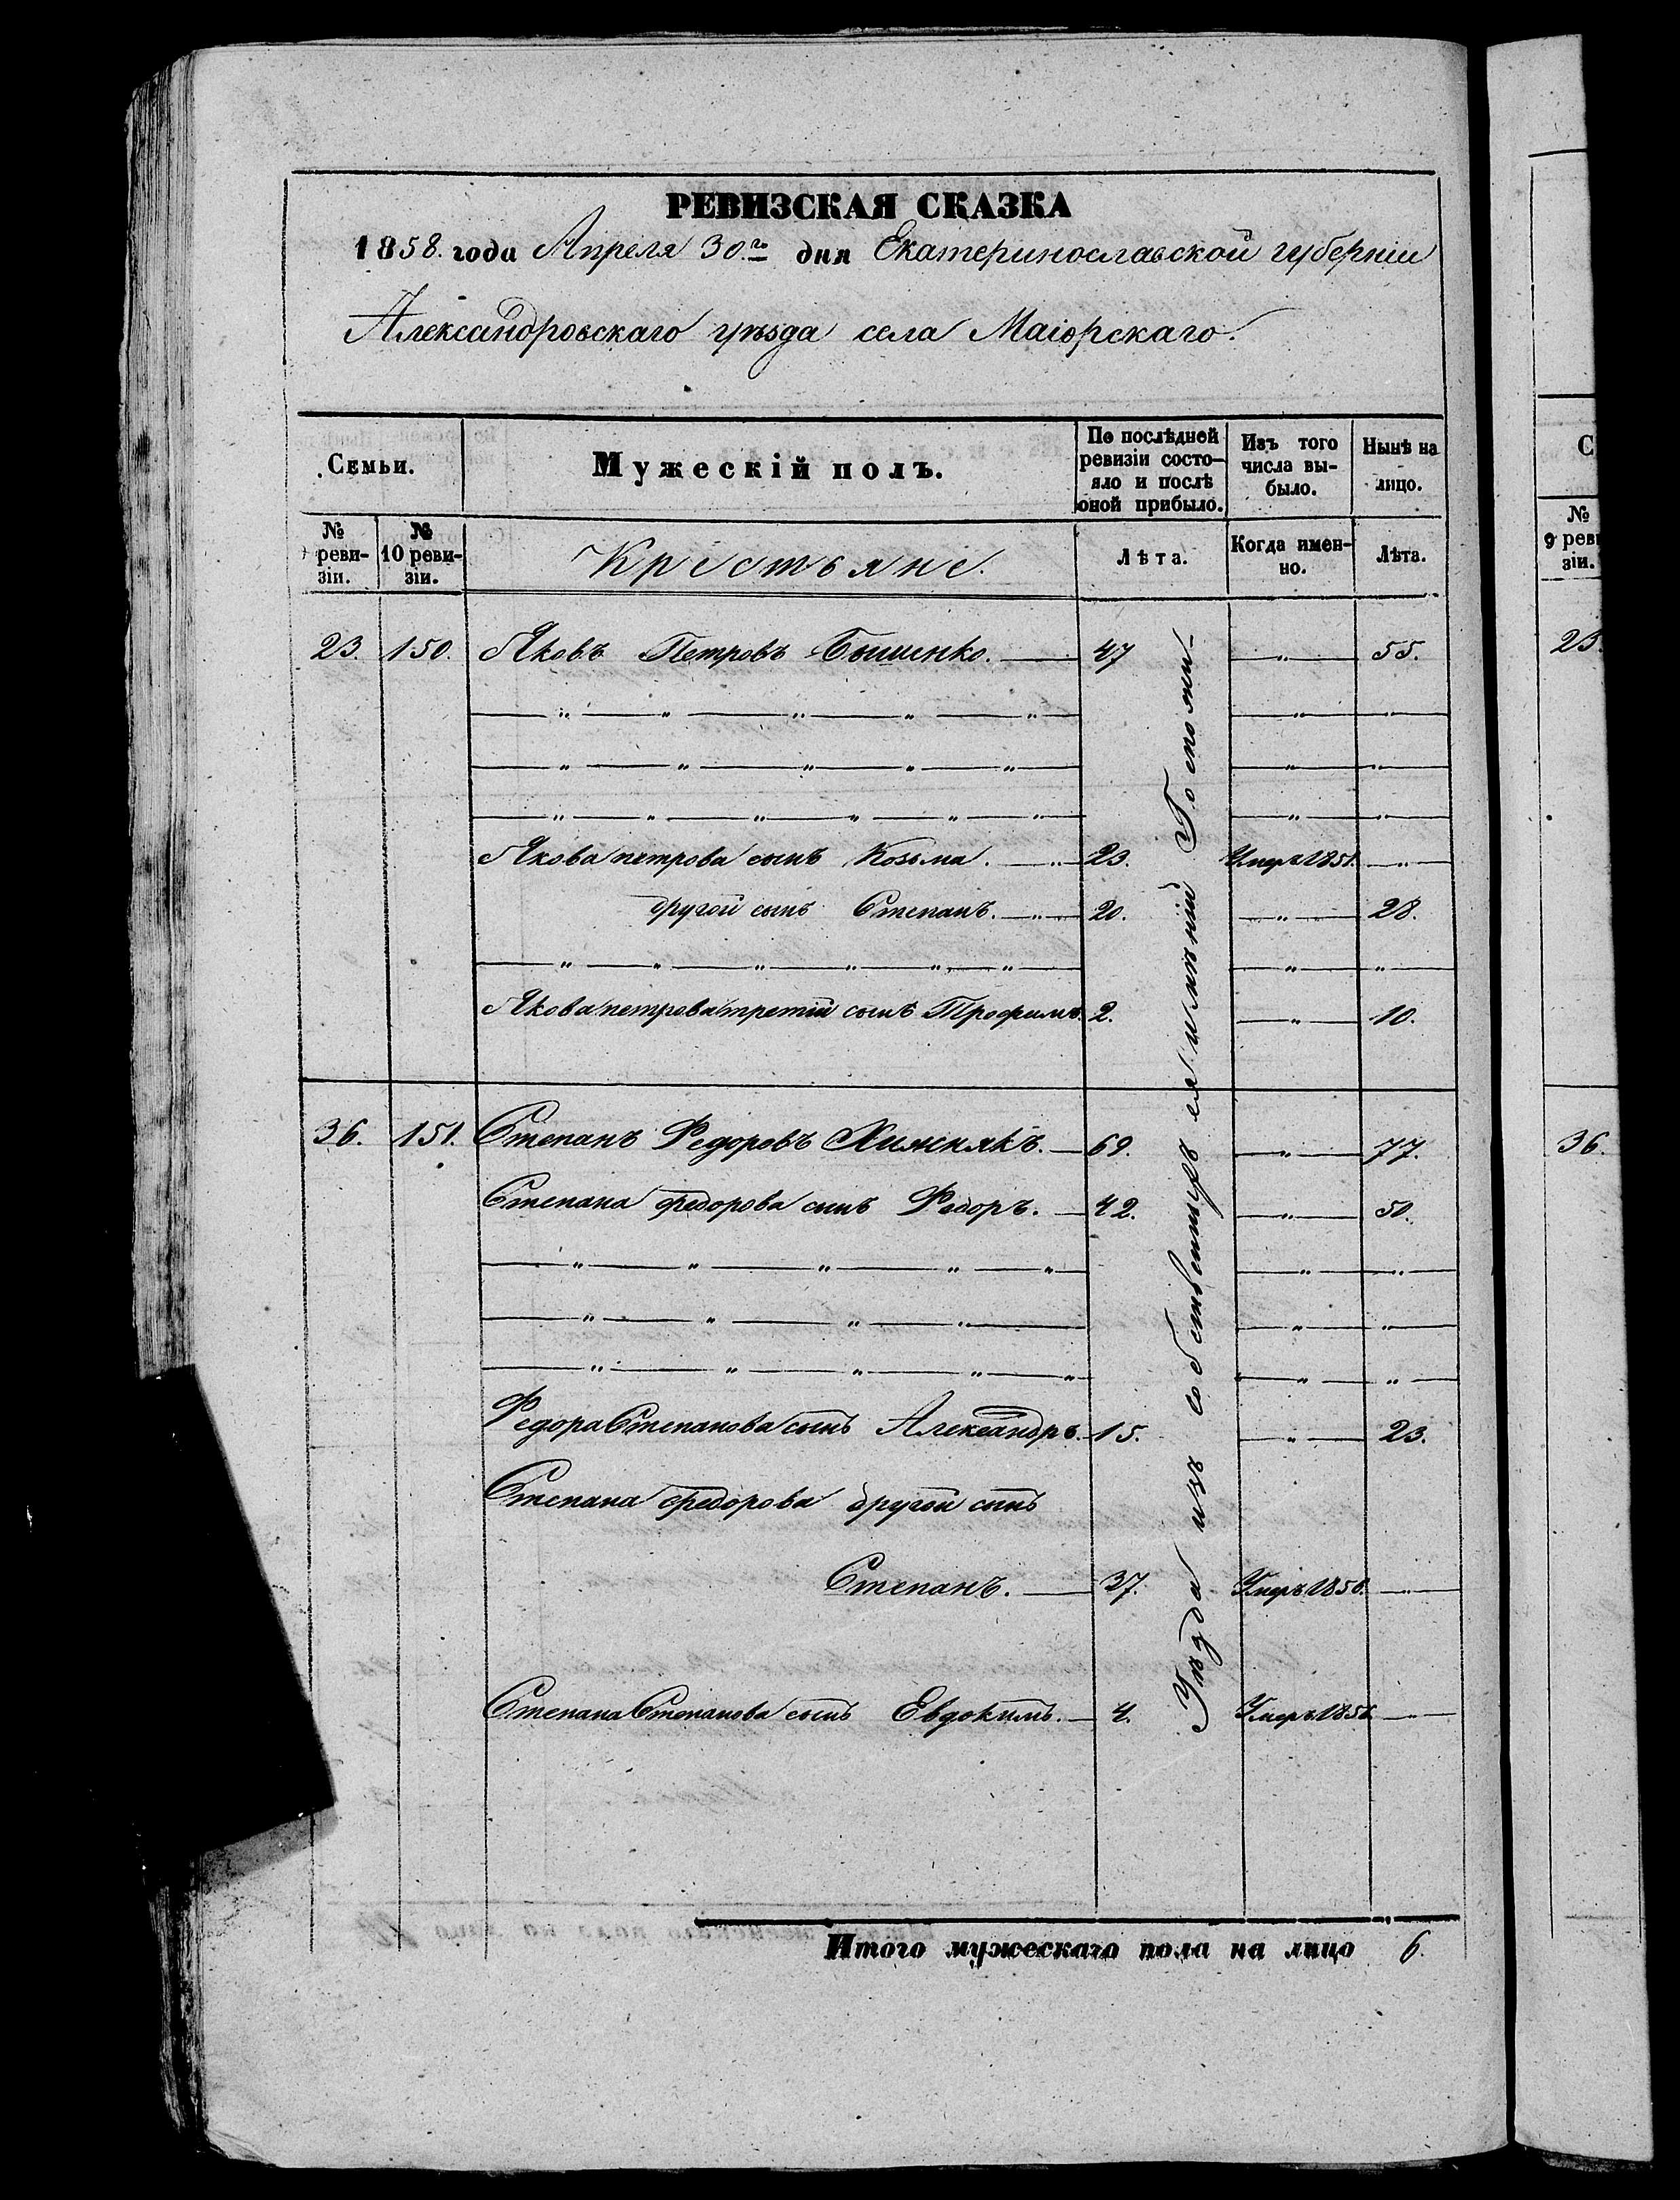 РЕВИЗСКАЯ СКАЗКА
1858. года Апреля 30.го дня Екатеринославской губерніи
Александровскаго уѣзда села Маіорскаго.
Семьи.
Мужескій полъ.
По послѣдней ревизіи состо-
яло и послѣ
оной прибыло.
Изъ того
числа вы-
было.
Нынѣ на
лицо.
№
реви-
зіи.
№
10 реви-
зіи.
Крестьяне.
Лѣта.
Когда имен-
но.
Лѣта.
23. 150. Яковъ Петровъ 47 55.
Якова петрова сынъ Козьма. 23. Умеръ 1851.
другой сынъ Степанъ. 20. 28.
Якова петрова третій сынъ Трофимъ. 2. 10.
36. 151. Степанъ Федоровъ Химнякъ. 69. 77.
Степана федорова сынъ Федоръ. 42. 50.
Федора Степанова сынъ Александръ. 15. 23.
Степана федорова другой сынъ
Степанъ. 37. Умеръ 1850.
Степана Степанова сынъ Евдокимъ. 4. Умеръ
Уѣзда изъ собственныхъ ея имѣній
Итого мужескаго пола на лицо 6.
С
№
9 реви
зіи.
23.
36.